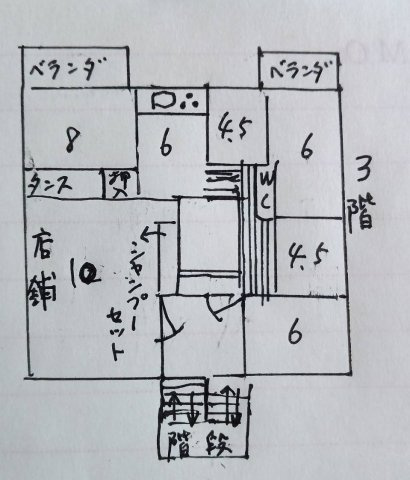 ベランダ
ベランダ
8
6
4.5
6
3階
タンス
押入
WC
店舗
10
シャンプーセット
4.5
6
階段